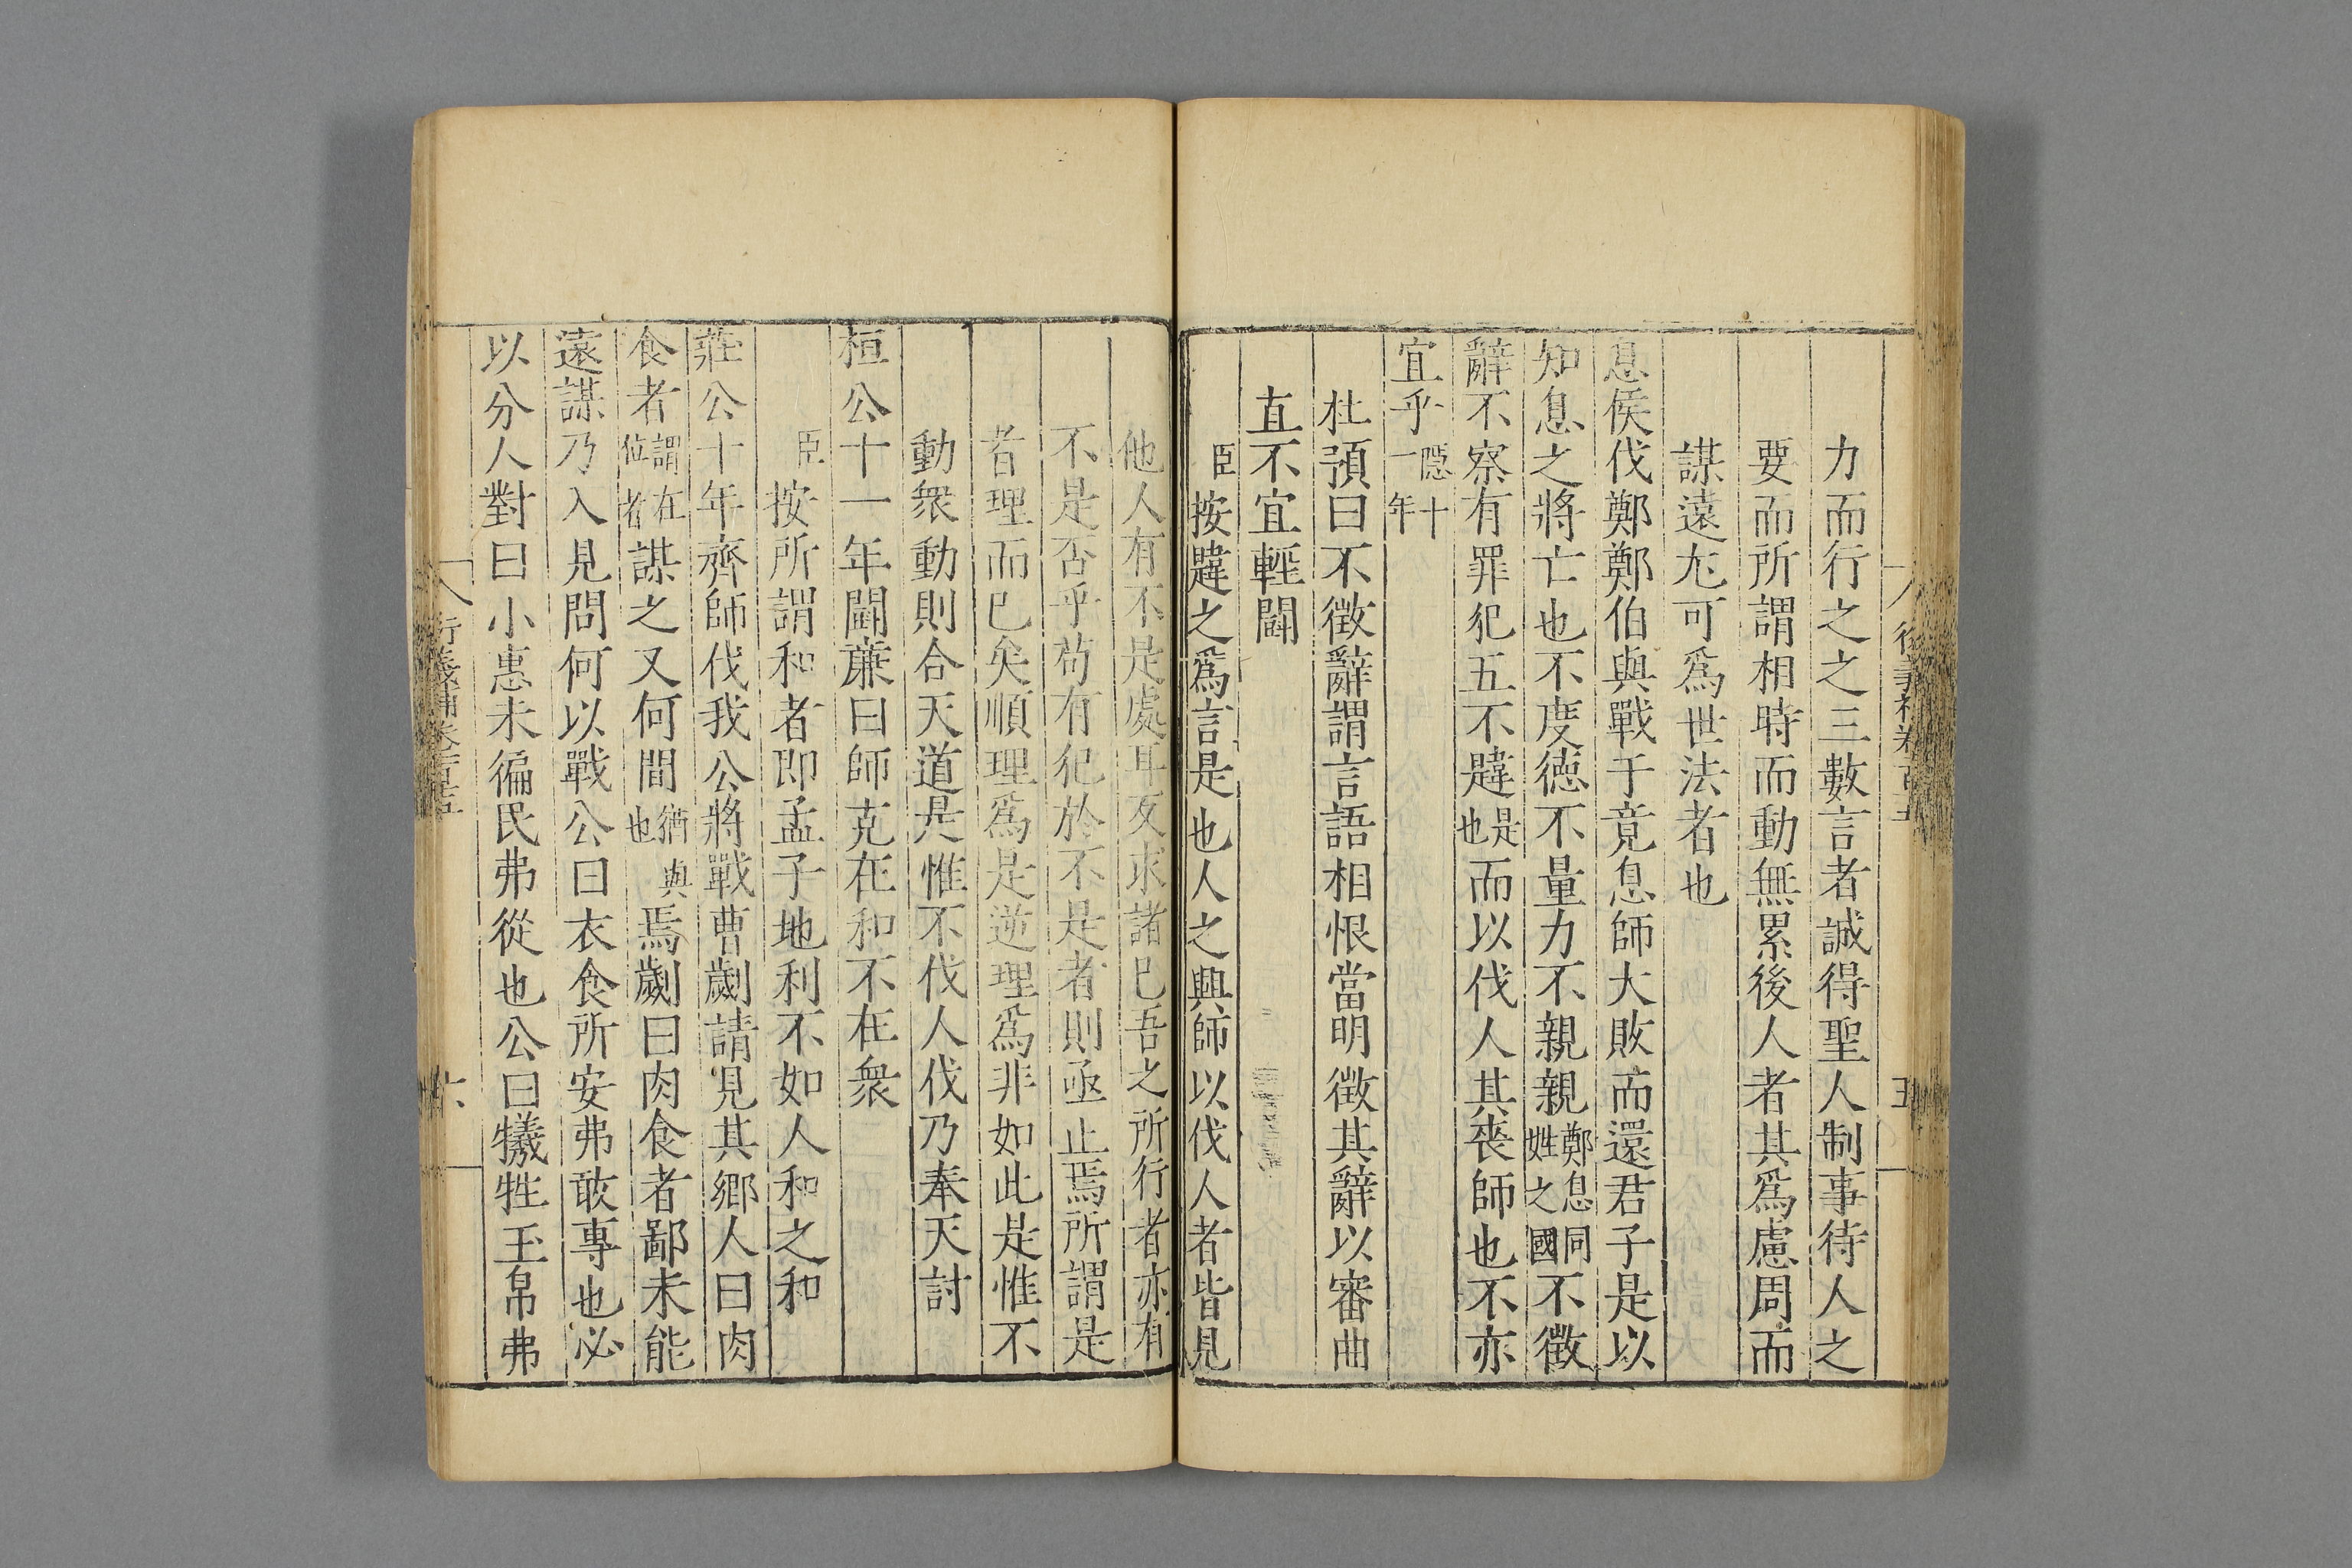 力而行之之三數言者誠得聖人制事待人之
要而所謂相時而動無累後人者其爲慮周而
謀遠尤可爲世法者也
息侯伐鄭鄭伯與戰于竟息師大敗而還君子是以
知息之將亡也不度德不量力不親親鄭息同姓之國不徵
辭不察有罪犯五不韙是也而以伐人其喪師也不亦
宜乎隱十一年
杜預曰不徵辭謂言語相恨當明徵其辭以審曲
直不宜輕鬬
臣按韙之爲言是也人之興師以伐人者皆見
他人有不是處耳反求諸己吾之所行者亦有
不是否乎苟有犯於不是者則亟止焉所謂是
者理而已矣順理爲是逆理爲非如此是惟不
動衆動則合天道是惟不伐人伐乃奉天討
桓公十一年鬬廉曰師克在和不在衆
臣按所謂和者即孟子地利不如人和之和
莊公十年齊師伐我公將戰曹劌請見其鄉人曰肉
食者謂在位者謀之又何間猶與也焉劌曰肉食者鄙未能
遠謀乃入見問何以戰公曰衣食所安弗敢專也必
以分人對曰小惠未徧民弗從也公曰犧牲玉帛弗